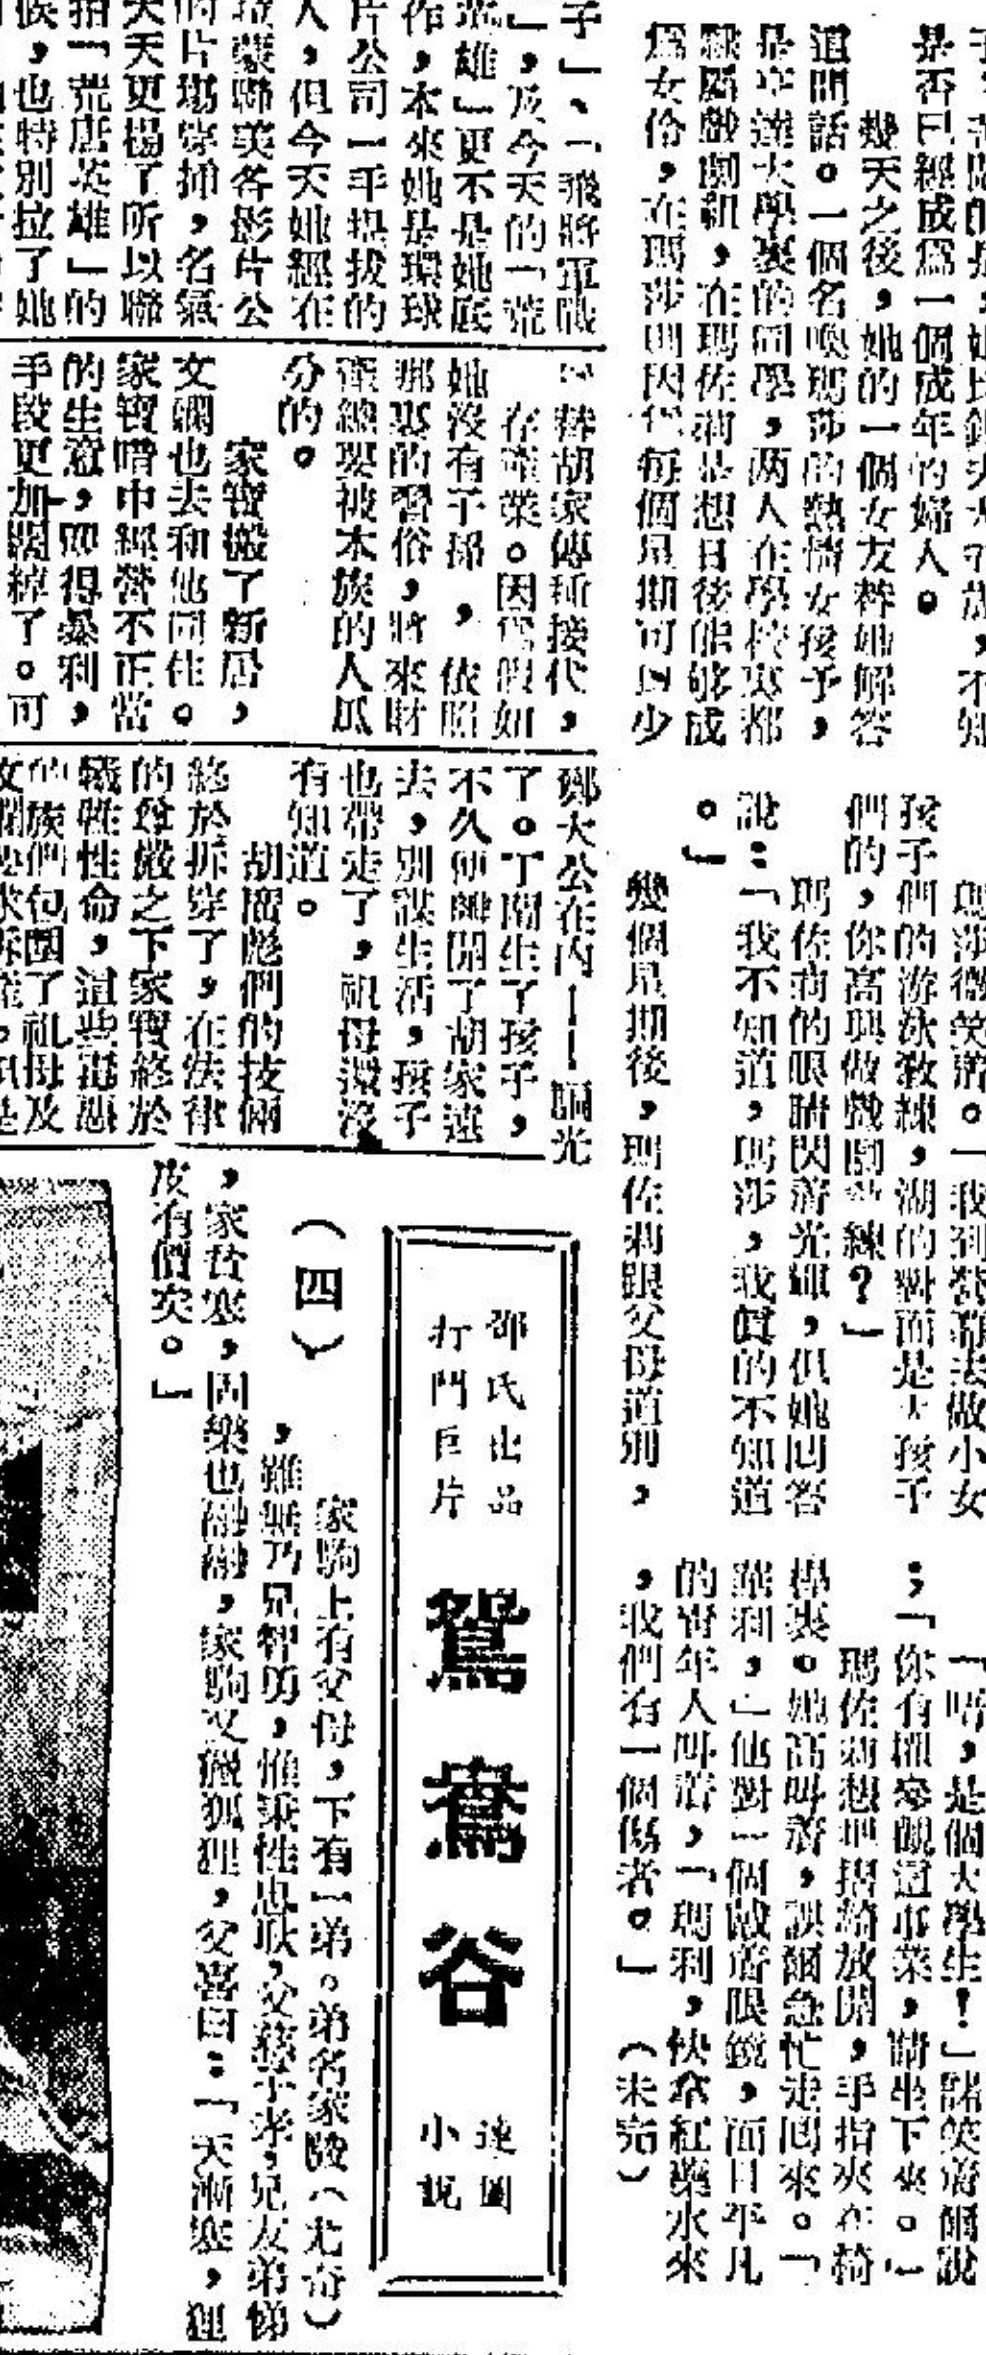 是否已經成爲一個成年的婦人。
幾天之後，她的一個女友替她解答
這問話。一個名喚瑪莎的熱情女孩子，
是辛達大學裏的同學，两人在學校裏都
隸屬戲劇組，在瑪佐莉是想日後能够成
爲女伶，在瑪莎則因爲每個星期可以少
瑪莎微笑着。「我到營部去做小女
孩子們的游泳敎練，湖的對面是大孩子
們的，你高興做戲劇敎練？」
瑪佐莉的眼睛閃着光輝，但她回答
說：「我不知道，瑪莎，我眞的不知道
。」
幾個星期後，瑪佐莉跟父母道別，
「唔，是個大學生！」諾笑着爾說
；「你有權參觀這事業，請坐下來。」
瑪佐莉想把摺椅放開，手指夾在椅
裏。她高叫着，諾爾急忙走回來。「
華利，」他對一個戴着眼鏡，面目平凡
的靑年人叫着，「瑪利，快拿紅藥水來
，我們有一個傷者。」（未完）
子」、「飛將軍戰
」，及今天的「荒
雄」更不是她底
作，本來她是環球
片公司一手提拔的
人，但今天她經在
聯美各影片公
的片塲穿揷，名氣
天天更揚了所以聯
拍「荒唐英雄」的
候，也特別拉了她
替胡家傳宗接代，
存產業。因爲假如
她沒有子孫，依照
那裏的習俗，將來財
產總要被本族的人瓜
分的。
家寶搬了新居，
文嫻也去和他同住。
家寶暗中經營不正常
的生意，卽得暴利，
手段更加闊綽了。可
鄭大公在內——胴光
了。丁開生了孩子，
不久便離開了胡家遠
去，別謀生活，孩子
也帶走了，祖母還沒
有知道。
胡廣彪們的技倆
終於拆穿了，在法律
的尊嚴之下家寶終於
犧牲性命，這些
的族們包圍了祖母及
邵氏出品
打鬥巨片
鴛鴦谷
連圖
小說
（四）
家駒上有父母，下有一弟。弟名家陵（尤奇）
，雖無乃兄智勇，惟秉性忠耿，父慈子孝，兄友弟悌
，家貧寒，固樂也融融，家駒又獵狐狸，父喜曰：「天漸寒，狸
皮有價矣。」